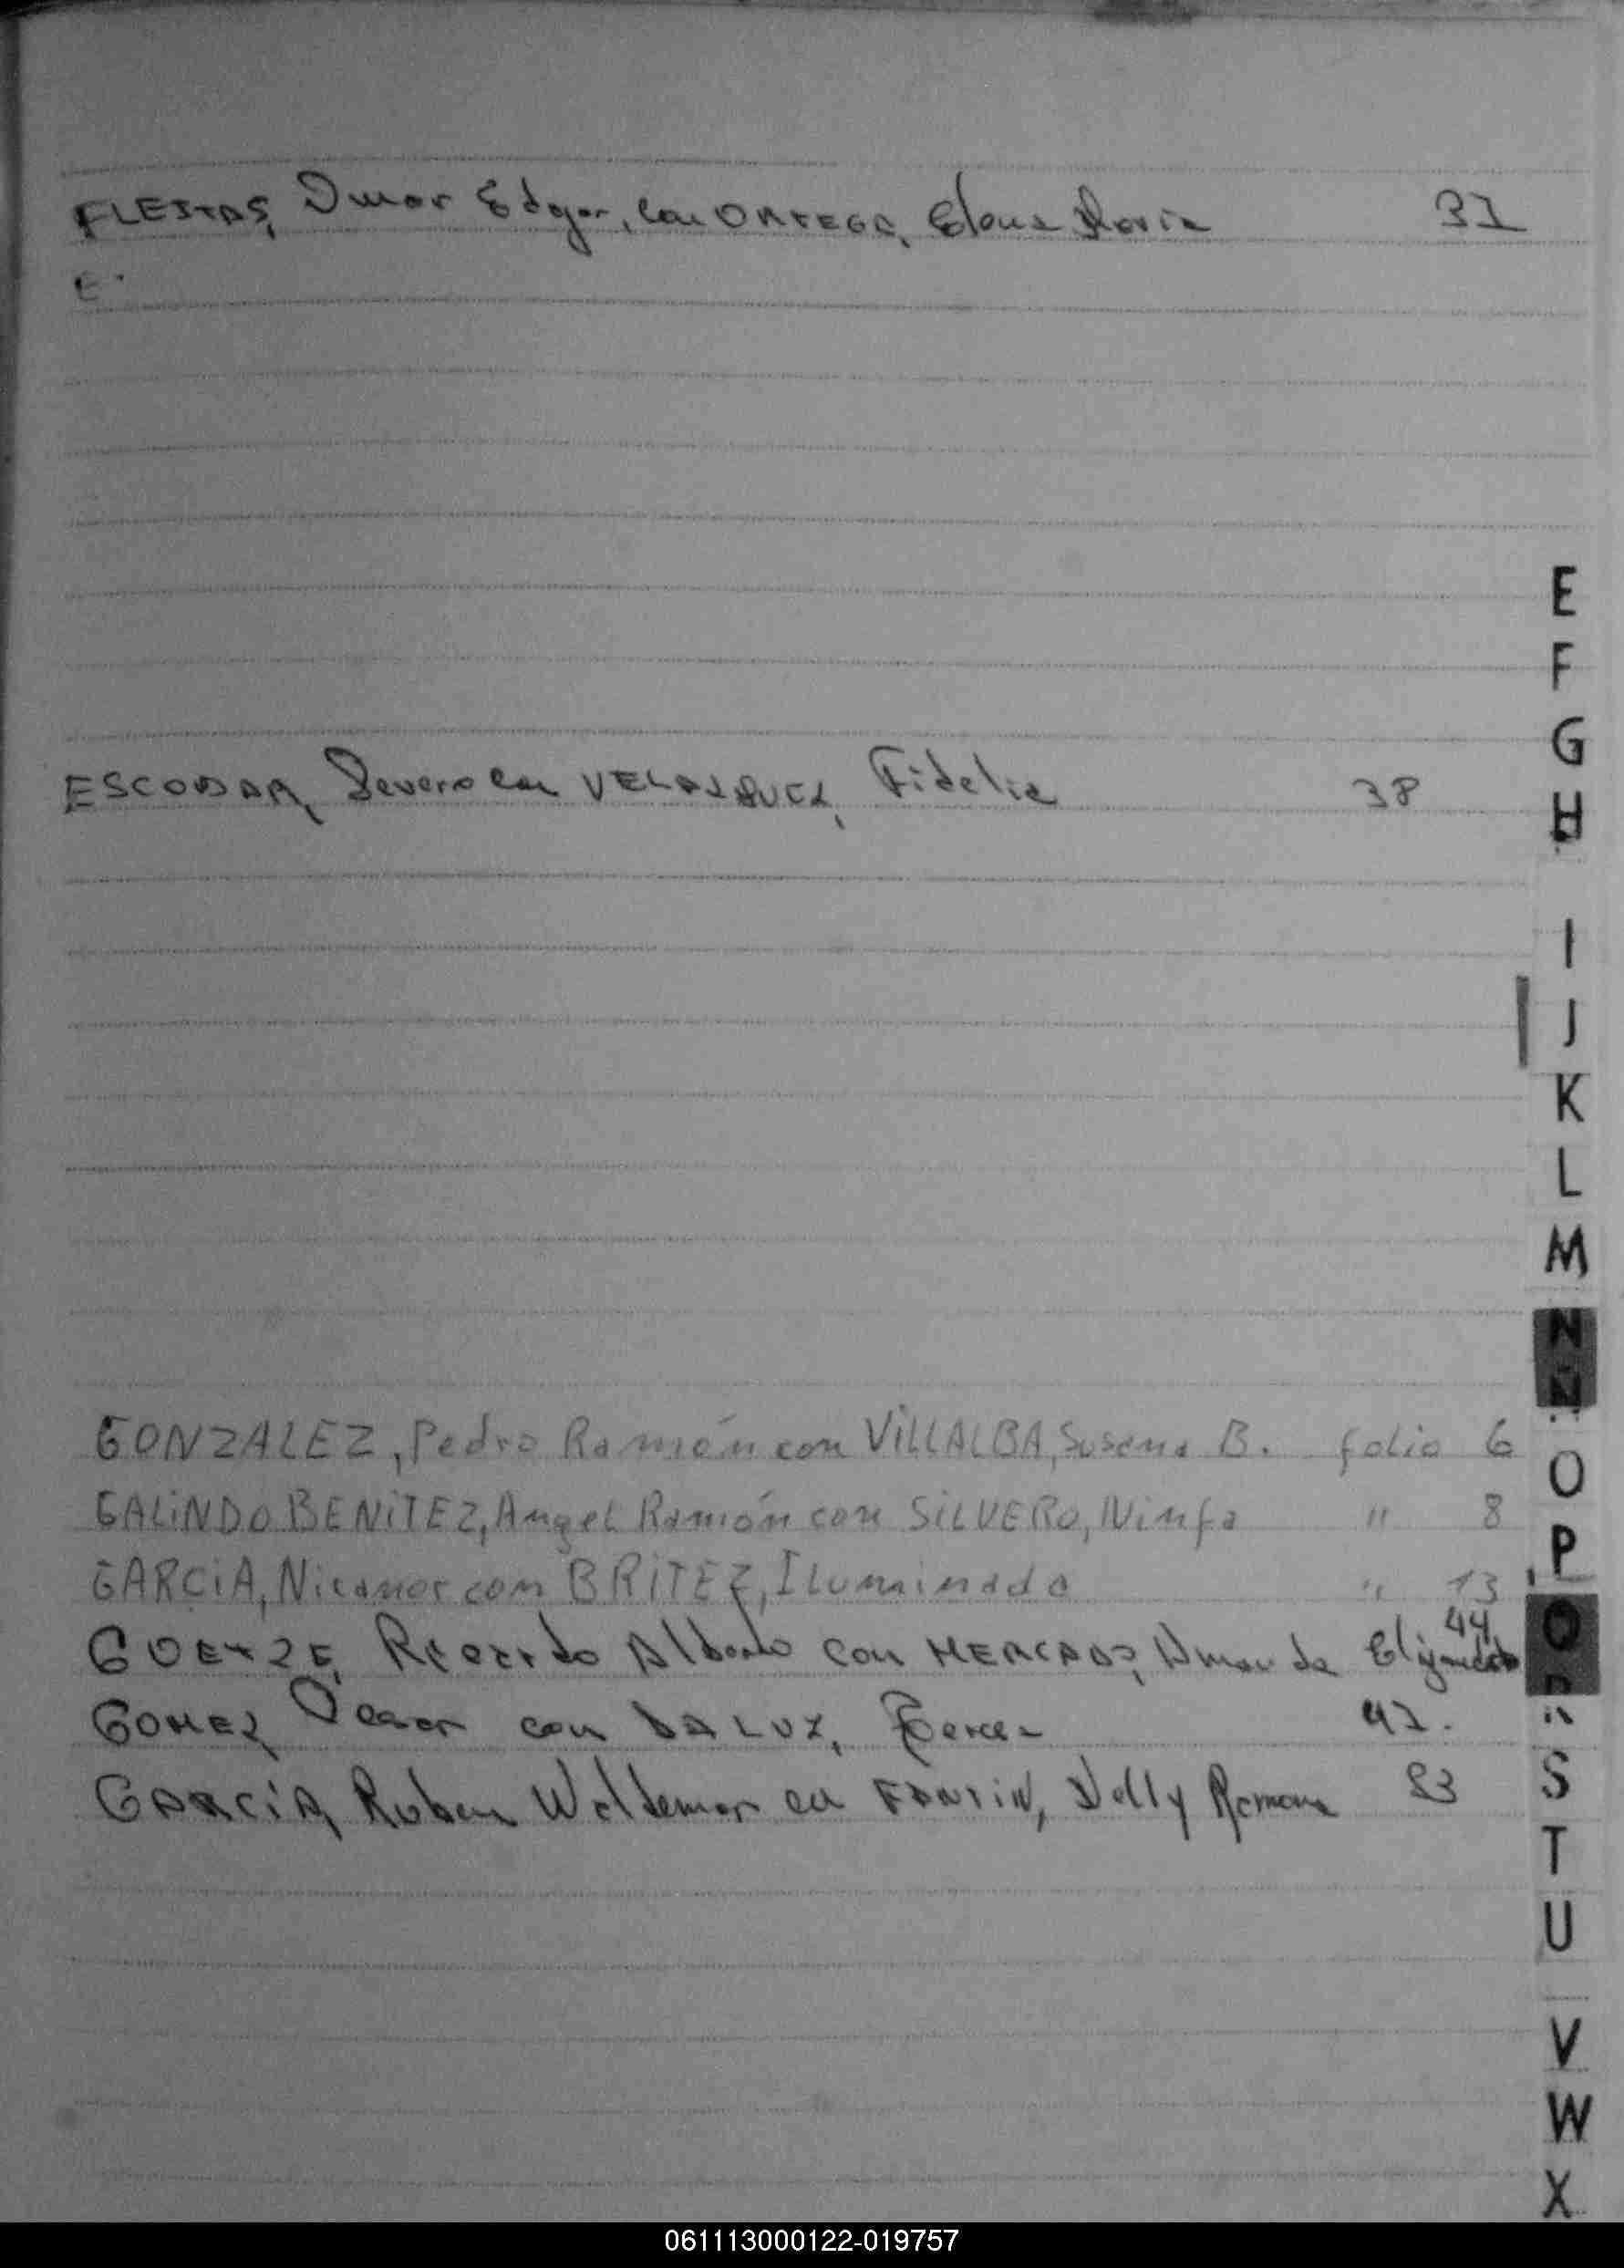 FLEITAS, Omar Edgar, con ORTEGA, Elena María 31
E.
ESCOBAR, Severo con VELAZQUEZ, Fidelia 38
GONZALEZ, Pedro Ramón con VILLALBA, Susana B. folio 6
GALINDO BENITEZ, Angel Ramón con SILVERO, Ninfa " 8
GARCIA, Nicanor con BRITEZ, Iluminada " 13
44
GOETZE, Ricardo Alberto con MERCADO, Amanda
GOMEZ, Oscar con DALUZ, 42.
GARCÍA, Ruben Waldemar con FANTIN, Nelly Ramona 83
E
F
G
H
I
J
K
L
M
N
Ñ
O
P
Q
R
S
T
U
V
W
X
061113000122-019757